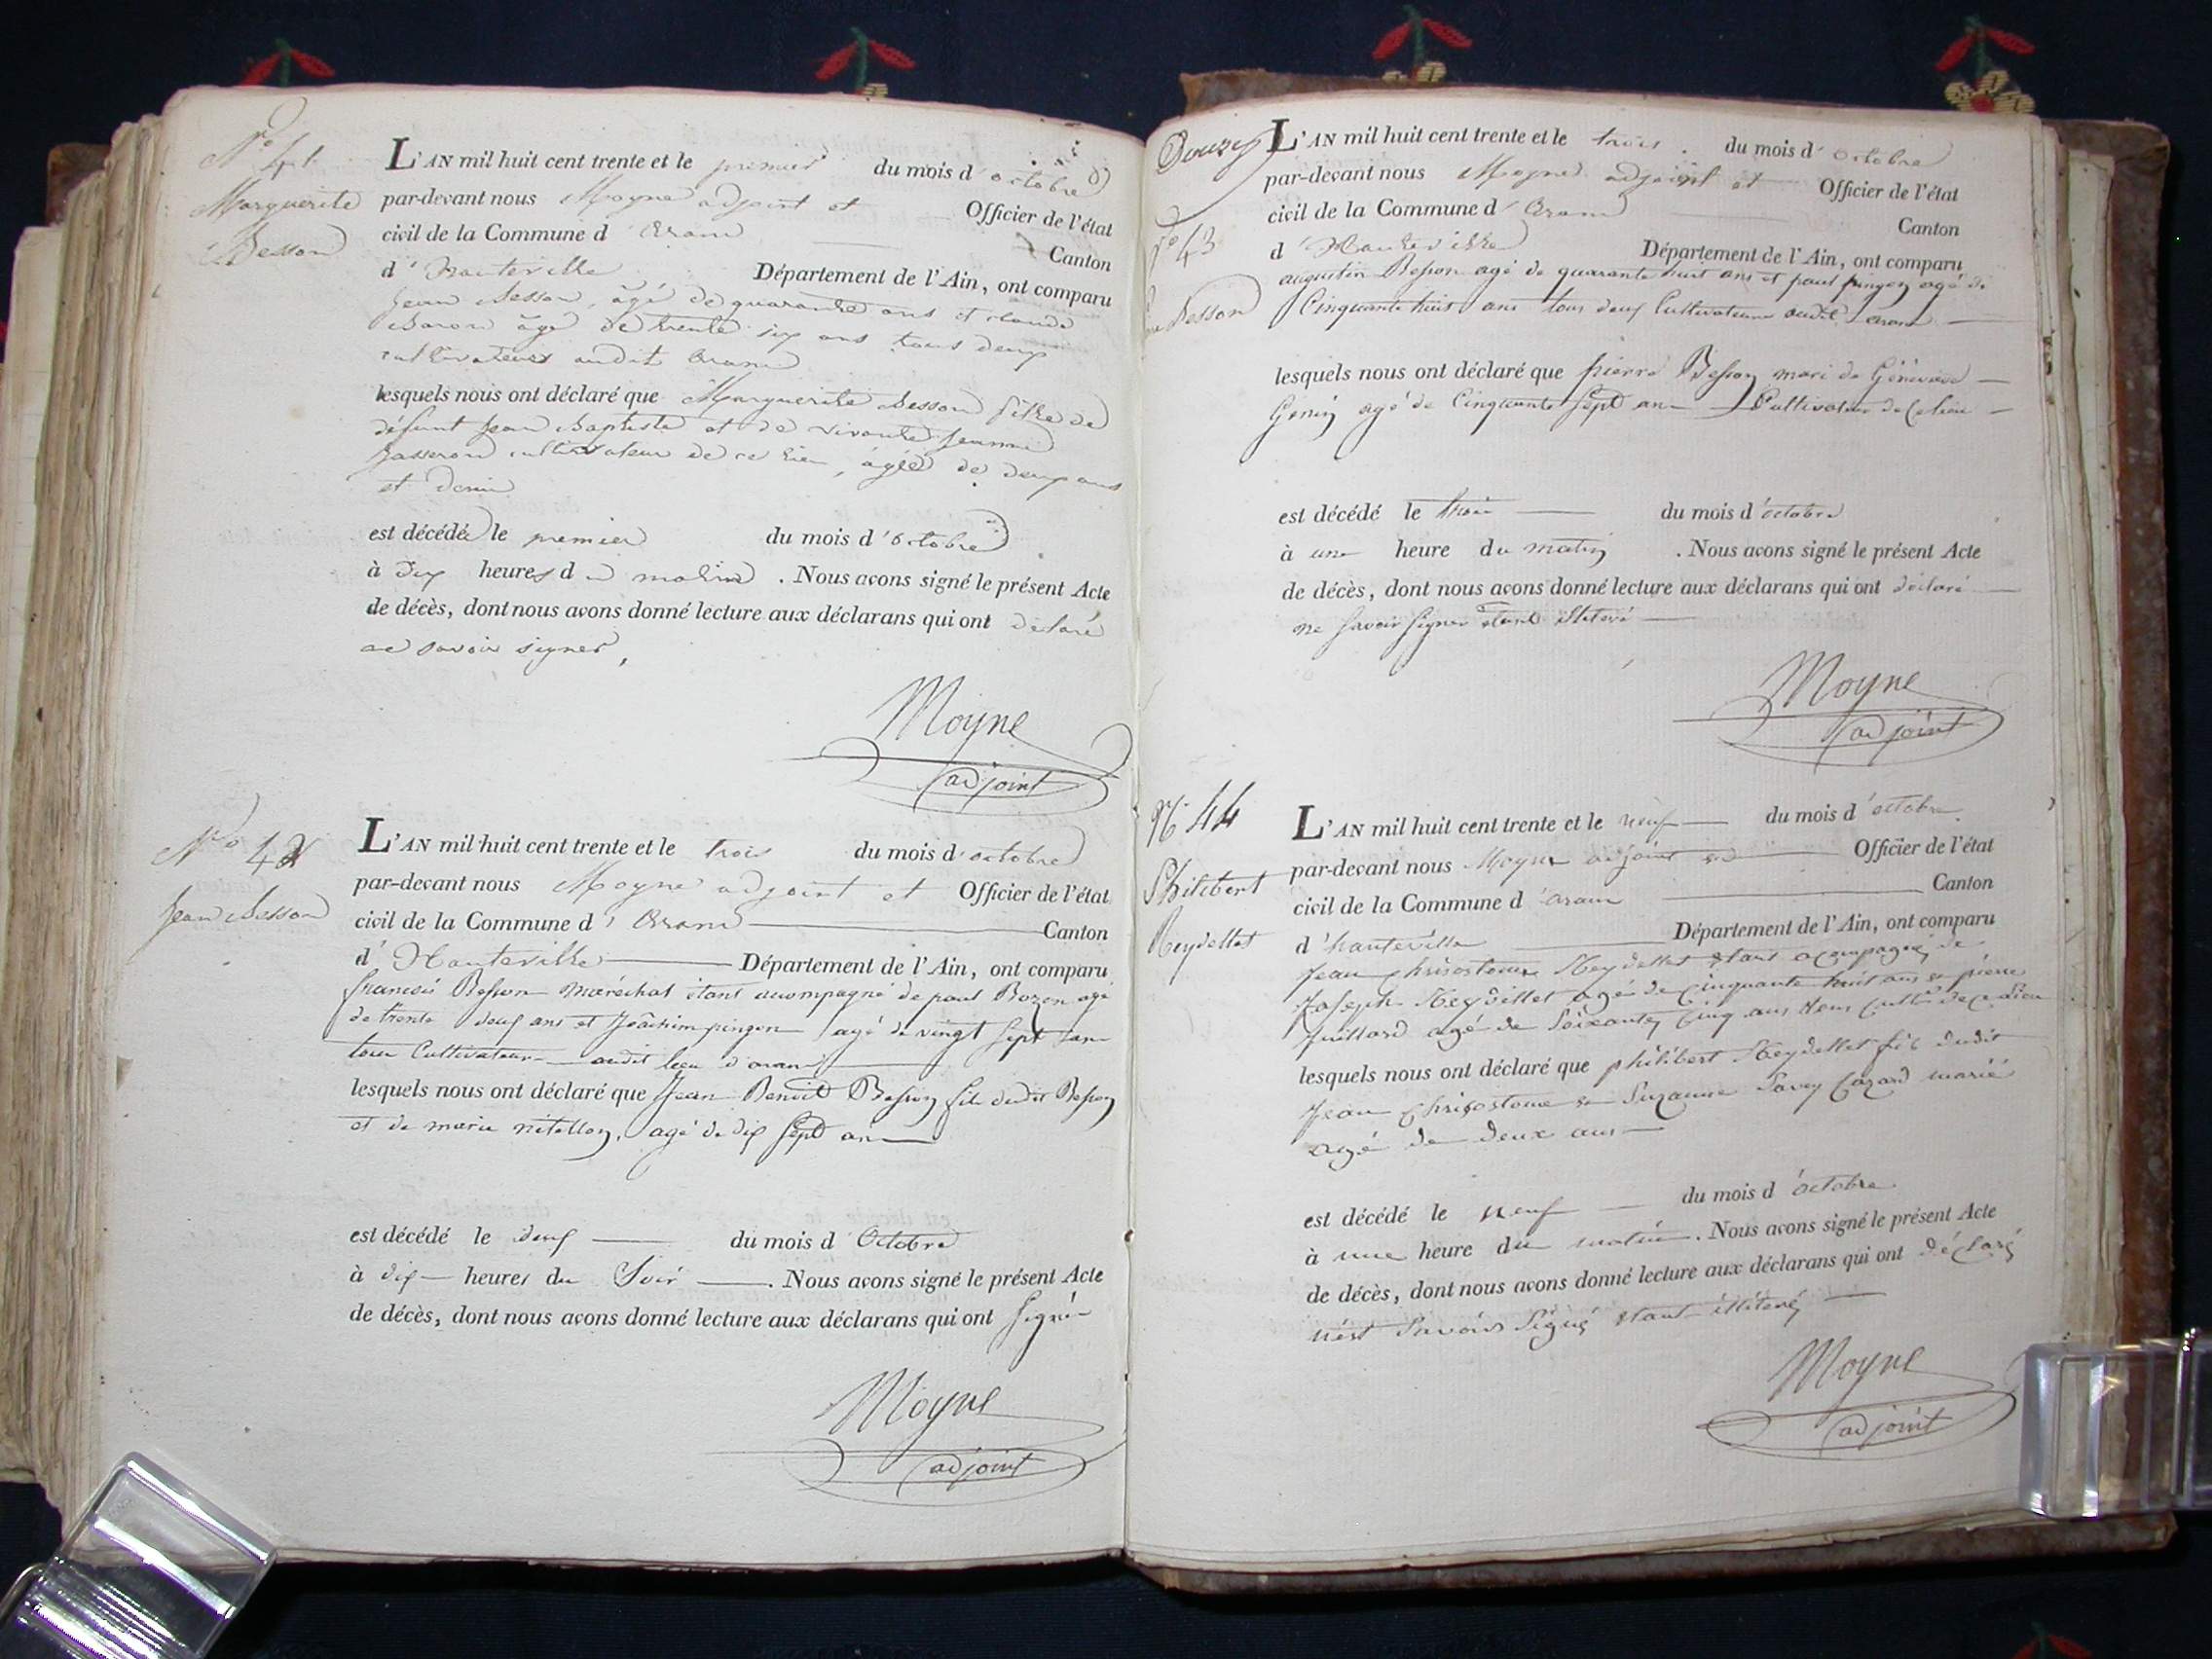 No 41
Marguerite
Besson
L'AN mil huit cent trente et le premier du mois d'octobre
par-devant nous Moyne adjoint et Officier de l'état
civil de la Commune d'Aranc Canton
d'hauteville Département de l'Ain, ont comparu
Jean Besson, âgé de quarante ans et claude
Baron âgé de trente six ans tous deux
cultivateurs audit Aranc
lesquels nous ont déclaré que Marguerite Besson fille de
défunt Jean Baptiste et de vivante Jeanne
Passeron cultivateur de ce lieu, âgée de deux ans
et demi
est décédée le premier du mois d'octobre
à Dix heures du matin. Nous avons signé le présent Acte
de décès, dont nous avons donné lecture aux déclarans qui ont déclaré
ne savoir signer,
Moyne
adjoint
No 42
Jean Besson
L'AN mil huit cent trente et le trois du mois d'octobre
par-devant nous Moyne adjoint et Officier de l'état
civil de la Commune d'Aranc Canton
d'Hauteville Département de l'Ain, ont comparu
francois Besson maréchal étant accompagné de paul Bozon agé
de trente deux ans et Joachim pingon agé de vingt sept ans
tous Cultivateurs audit lieu d'aranc
lesquels nous ont déclaré que Jean Benoit Besson fils dudit Besson
et de marie agé de dix sept ans
est décédé le deux du mois d'Octobre
à dix heures du Soir. Nous avons signé le présent Acte
de décès, dont nous avons donné lecture aux déclarans qui ont signé
Moyne
adjoint
Douze
No 43
Besson
L'AN mil huit cent trente et le trois du mois d'octobre
par-devant nous Moyne adjoint et Officier de l'état
civil de la Commune d'Aranc Canton
d'Hauteville Département de l'Ain, ont comparu
augustin Besson agé de quarante huit ans et paul pingon agé de
Cinquante huit ans tous deux Cultivateurs audit aranc
lesquels nous ont déclaré que pierre Besson mari de Géneviève
Genin agé de Cinquante sept ans Cultivateur de Ce lieu
est décédé le trois du mois d'octobre
à une heure du matin. Nous avons signé le présent Acte
de décès, dont nous avons donné lecture aux déclarans qui ont déclaré
ne savoir signer étant illiteré
Moyne
adjoint
No 44
Philibert
Reydellet
L'AN mil huit cent trente et le neuf du mois d'octobre
par-devant nous Moyne adjoint et Officier de l'état
civil de la Commune d'aranc Canton
d'hauteville Département de l'Ain, ont comparu
Jean Chrisostome Reydellet étant acompagné de
Joseph Reydellet agé de cinquante huit ans et pierre
Juillard agé de Soixante cinq ans tous cultr. de ce Lieu
lesquels nous ont déclaré que philibert Reydellet fils dudit
Jean Chrisostome et Suzanne Savey Cazard marié
agé de deux ans
est décédé le neuf du mois d'octobre
à une heure du matin. Nous avons signé le présent Acte
de décès, dont nous avons donné lecture aux déclarans qui ont déclaré
Signé étant illiteré
Moyne
adjoint